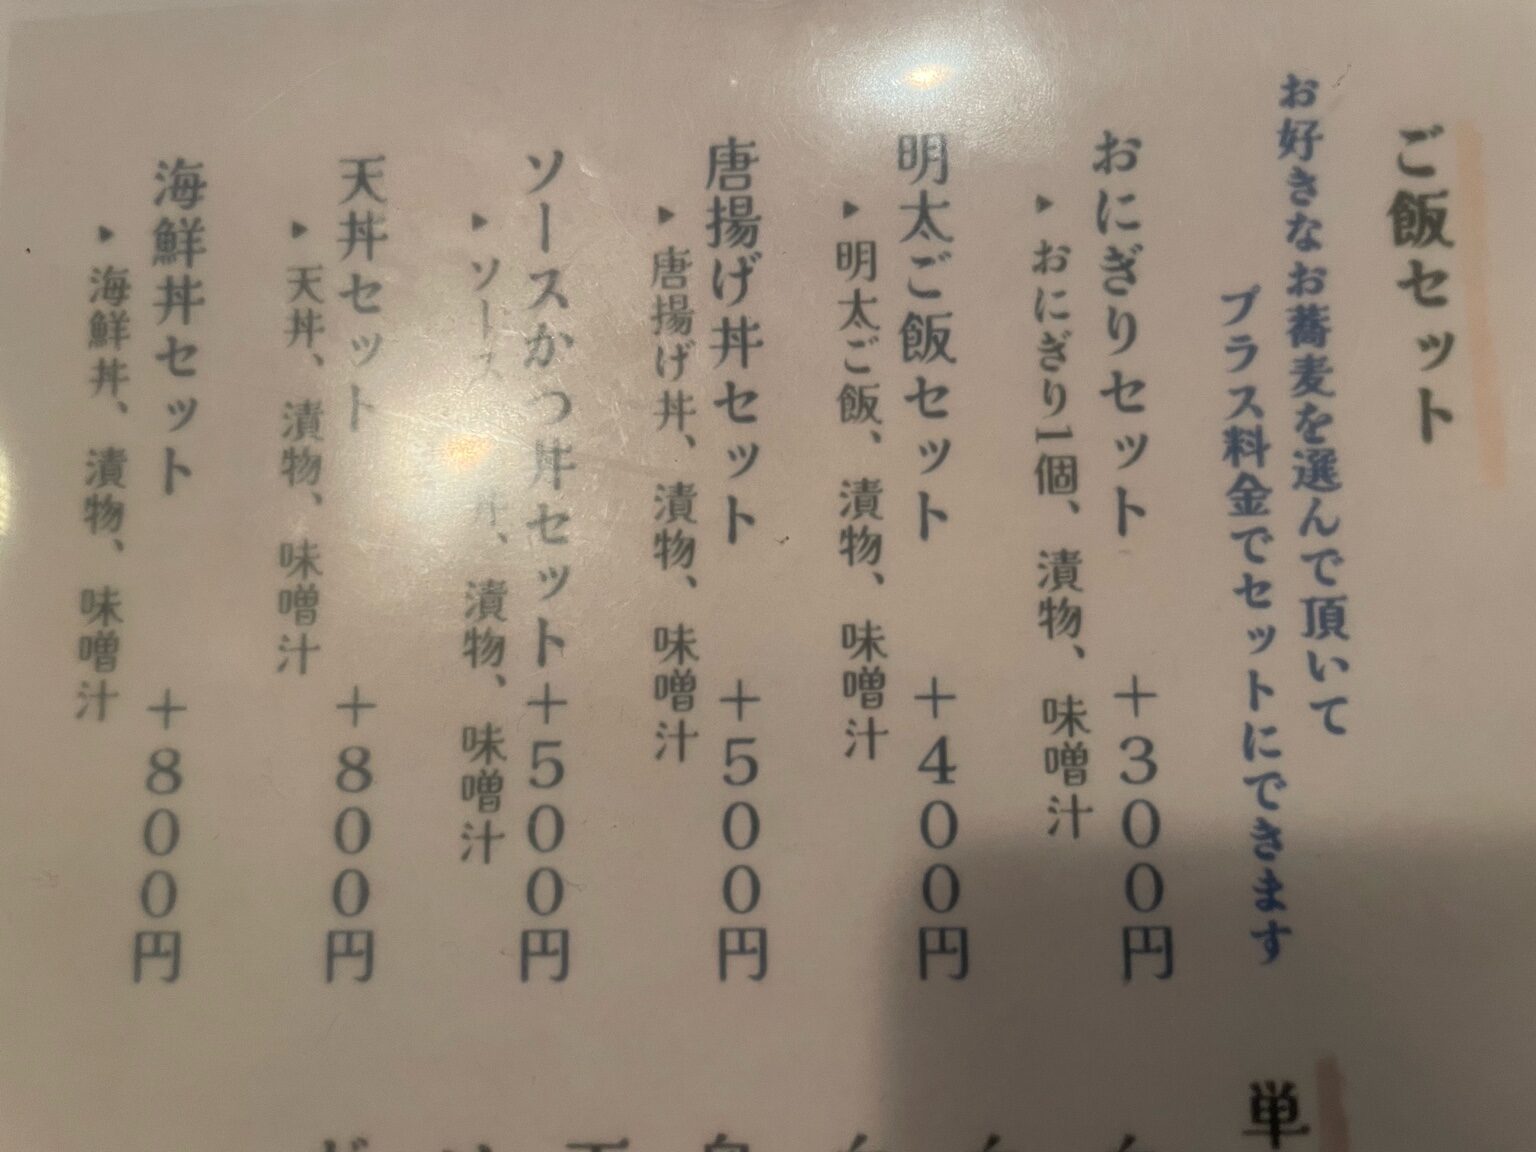 ご飯セット
お好きなお蕎麦を選んで頂いて
プラス料金でセットにできます
おにぎりセット +300円
▸おにぎり1個、漬物、味噌汁
明太ご飯セット +400円
▸明太ご飯、漬物、味噌汁
唐揚げ丼セット +500円
▸唐揚げ丼、漬物、味噌汁
ソースかつ丼セット+500円
▸ソース 丼、漬物、味噌汁
天丼セット +800円
▸天丼、漬物、味噌汁
海鮮丼セット +800円
▸海鮮丼、漬物、味噌汁
単